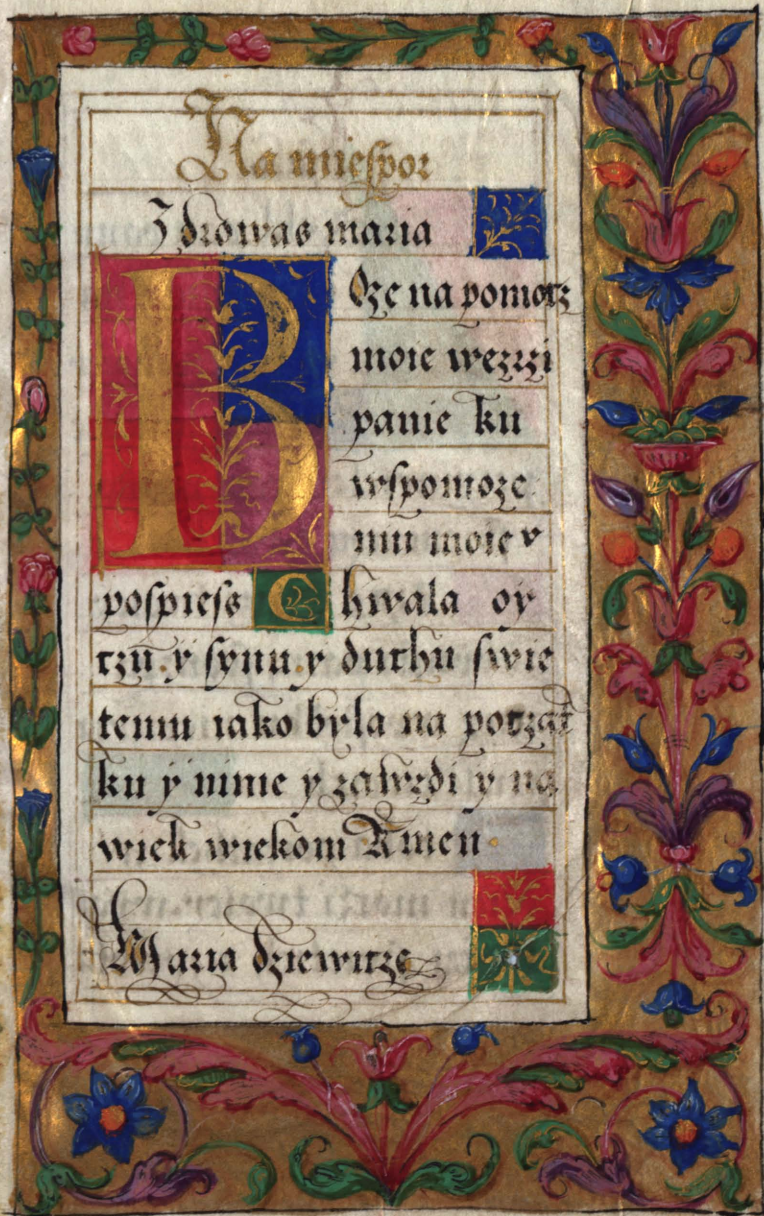 Na mieſpor
Zdrowas maria
Boze na pomotz
moie wezrzi
panie ku
wſpomoze
niu moie v
poſpieſs Chwala oy
tzu y ſynu y duchu ſwie
temu iako byla na potząt
ku y ninie y zawżdi y na
wiek wiekom Amen
Maria dziewitze